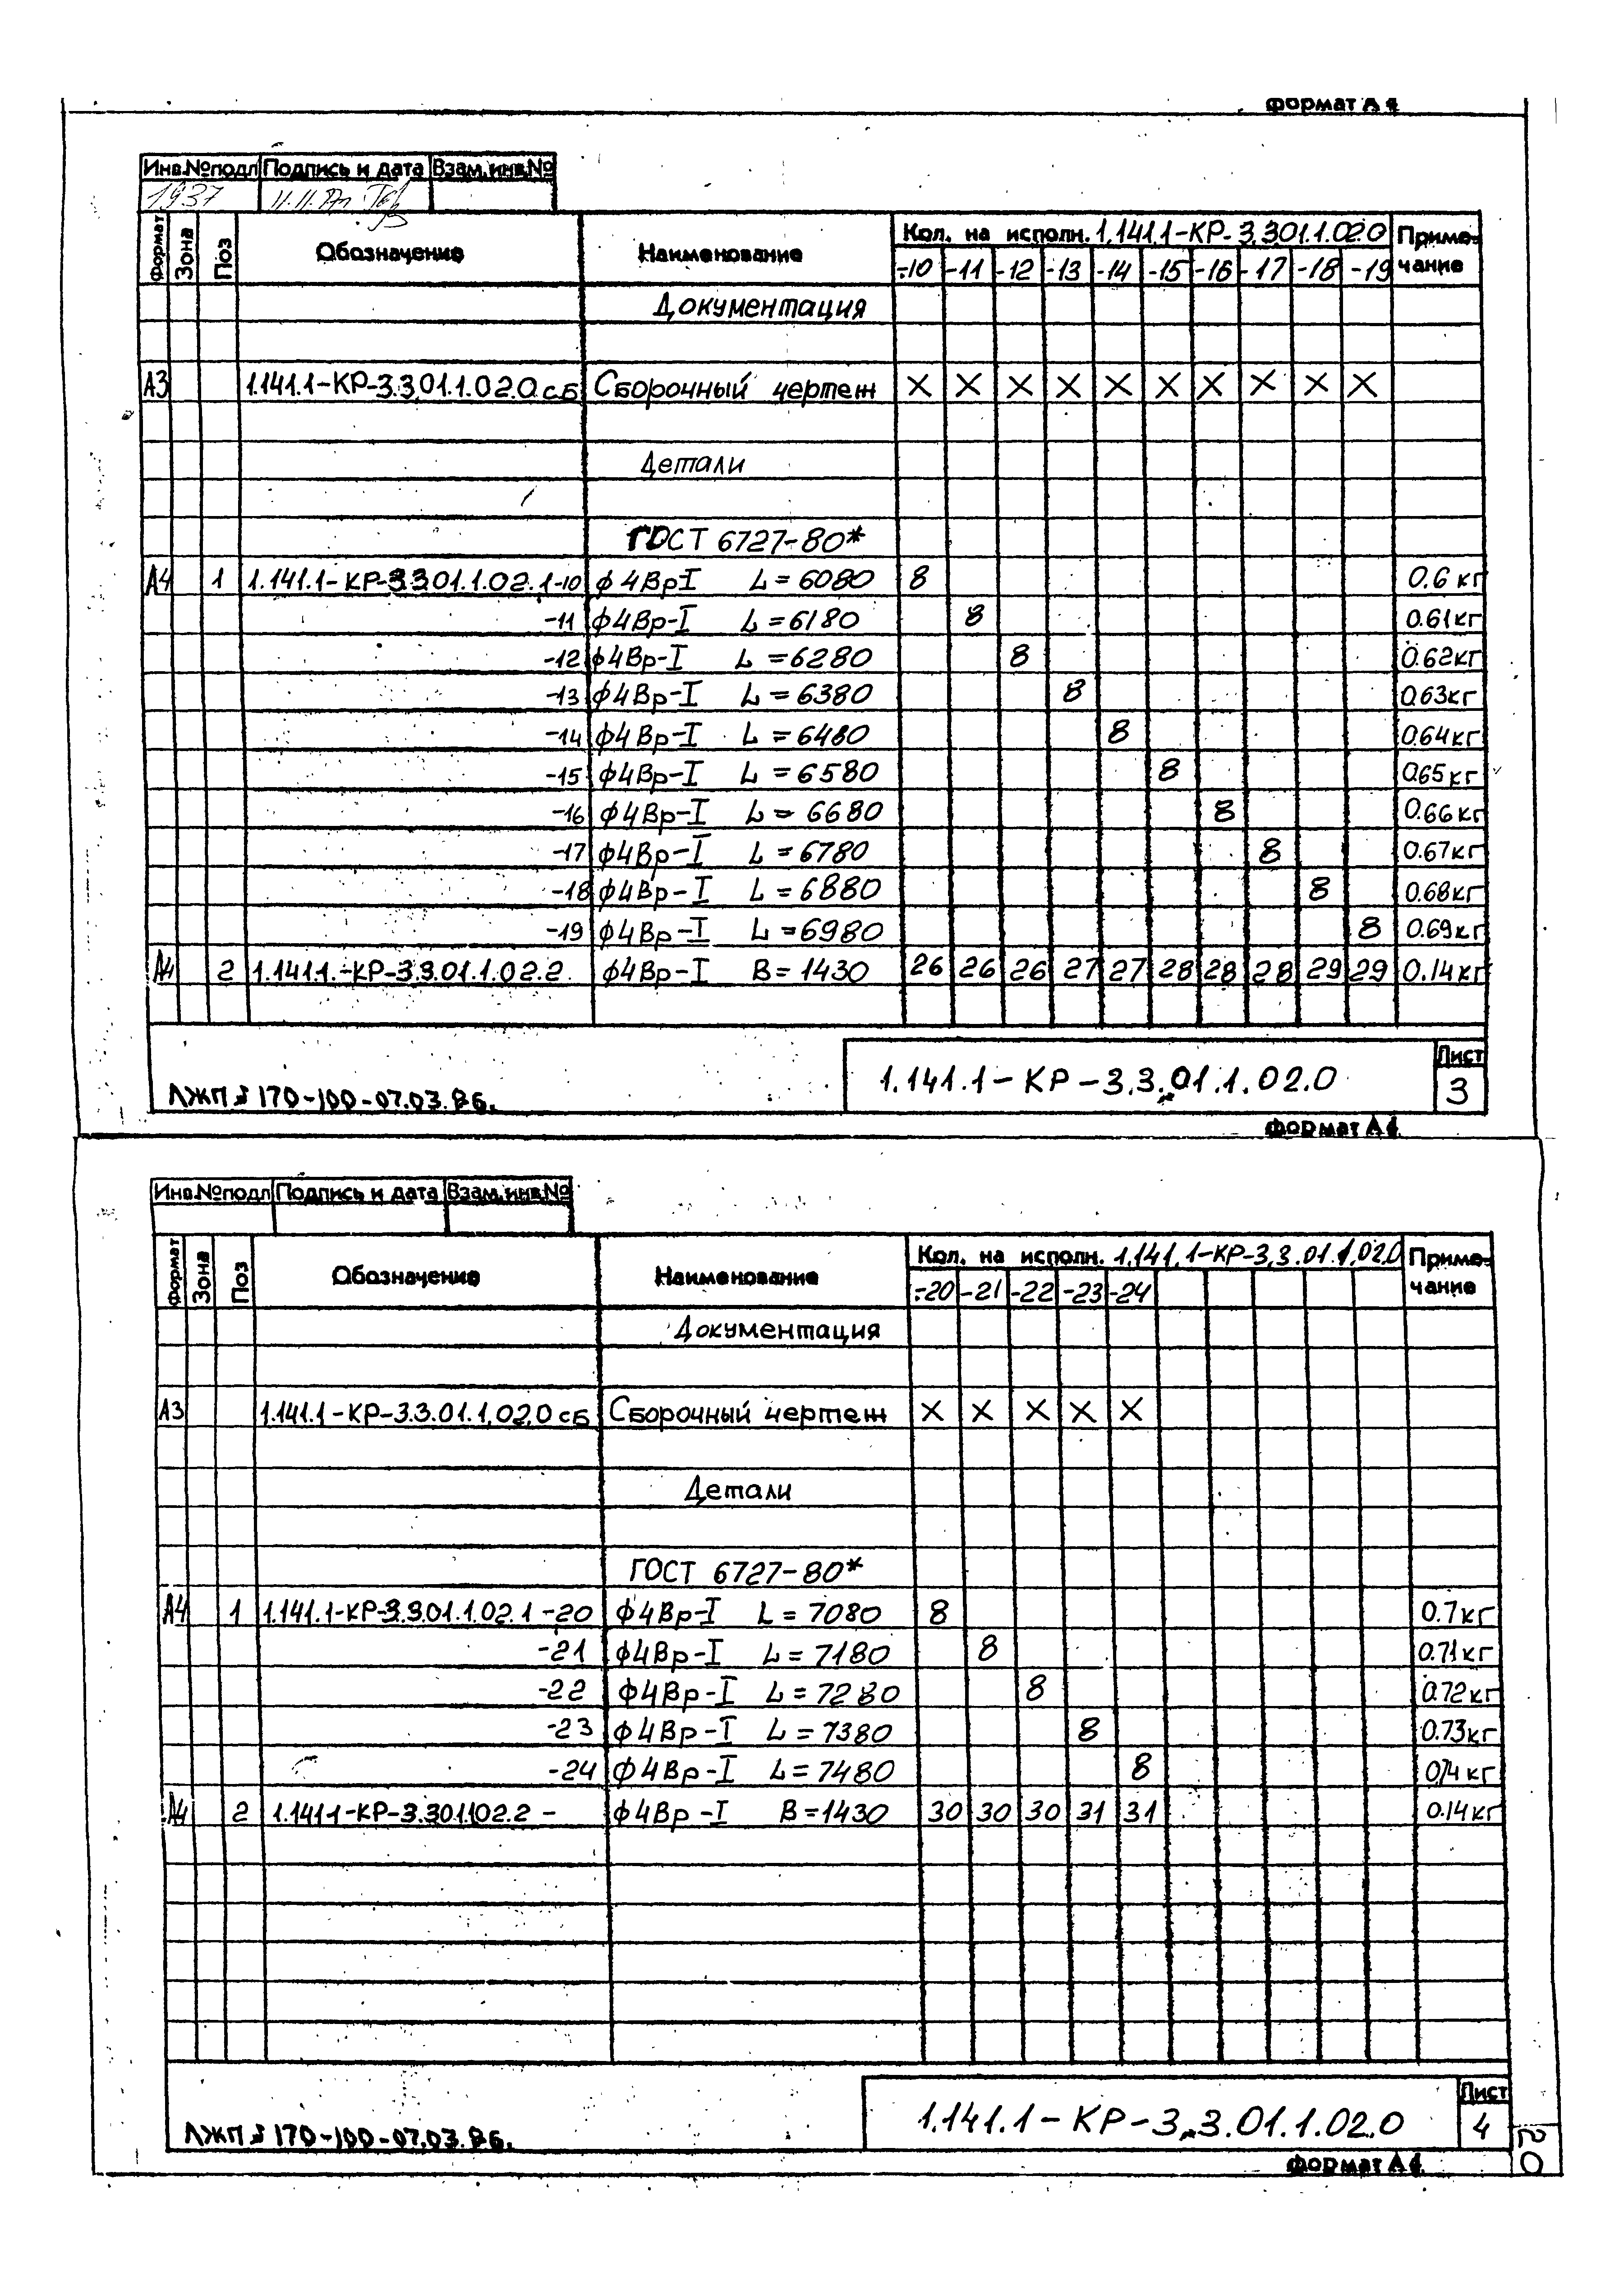 формат А4
Инв.№подл Подпись и дата Взам.инв.№
1937
Формат Зона Поз Обозначение Наименование Кол. на исполн. 1.141.1-КР-3.301.1.020 Приме-чание
-10 -11 -12 -13 -14 -15 -16 -17 -18 -19
Документация
А3 1.141.1-КР-3.3.01.1.02.0 сб Сборочный чертеж X X X X X X X X X X
Детали
ГОСТ 6727-80*
А4 1 1.141.1-КР-3.3.01.1.02.1-10 ф4ВрI L=6080 8 0.6 кг
-11 ф4Вр-I L=6180 8 0.61кг
-12 ф4Вр-I L=6280 8 0.62кг
-13 ф4Вр-I L=6380 8 0.63кг
-14 ф4Вр-I L=6480 8 0.64кг
-15 ф4Вр-I L=6580 8 0.65кг
-16 ф4Вр-I L=6680 8 0.66кг
-17 ф4Вр-I L=6780 8 0.67кг
-18 ф4Вр-I L=6880 8 0.68кг
-19 ф4Вр-I L=6980 8 0.69кг
А4 2 1.141.1.-КР-3.3.01.1.02.2. ф4Вр-I В=1430 26 26 26 27 27 28 28 28 29 29 0.14кг
1.141.1-КР-3.3.01.1.02.0
Лист
3
170-100-07.03.86.
формат А4
Инв.№подл Подпись и дата Взам.инв.№
Формат Зона Поз Обозначение Наименование Кол. на исполн. 1.141.1-КР-3.3.01.1.02.0 Приме-чание
-20 -21 -22 -23 -24
Документация
А3 1.141.1-КР-3.3.01.1.02.0 сб Сборочный чертеж X X X X X
Детали
ГОСТ 6727-80*
А4 1 1.141.1-КР-3.3.01.1.02.1-20 ф4Вр-I L=7080 8 0.7кг
-21 ф4Вр-I L=7180 8 0.71кг
-22 ф4Вр-I L=7280 8 0.72кг
-23 ф4Вр-I L=7380 8 0.73кг
-24 ф4Вр-I L=7480 8 0.74кг
А4 2 1.141.1-КР-3.3.01.1.02.2 - ф4Вр-I В=1430 30 30 30 31 31 0.14кг
1.141.1-КР-3.3.01.1.02.0
Лист
4
170-100-07.03.86.
формат А4
20